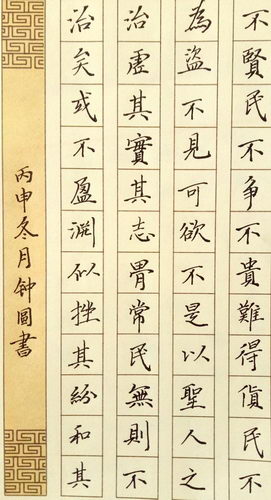 不賢民不争不貴難得貨民不
為盜不見可欲不是以聖人之
治虛其實其志骨常民無則不
治矣或不盈淵似挫其紛和其
丙申冬月钟圖書